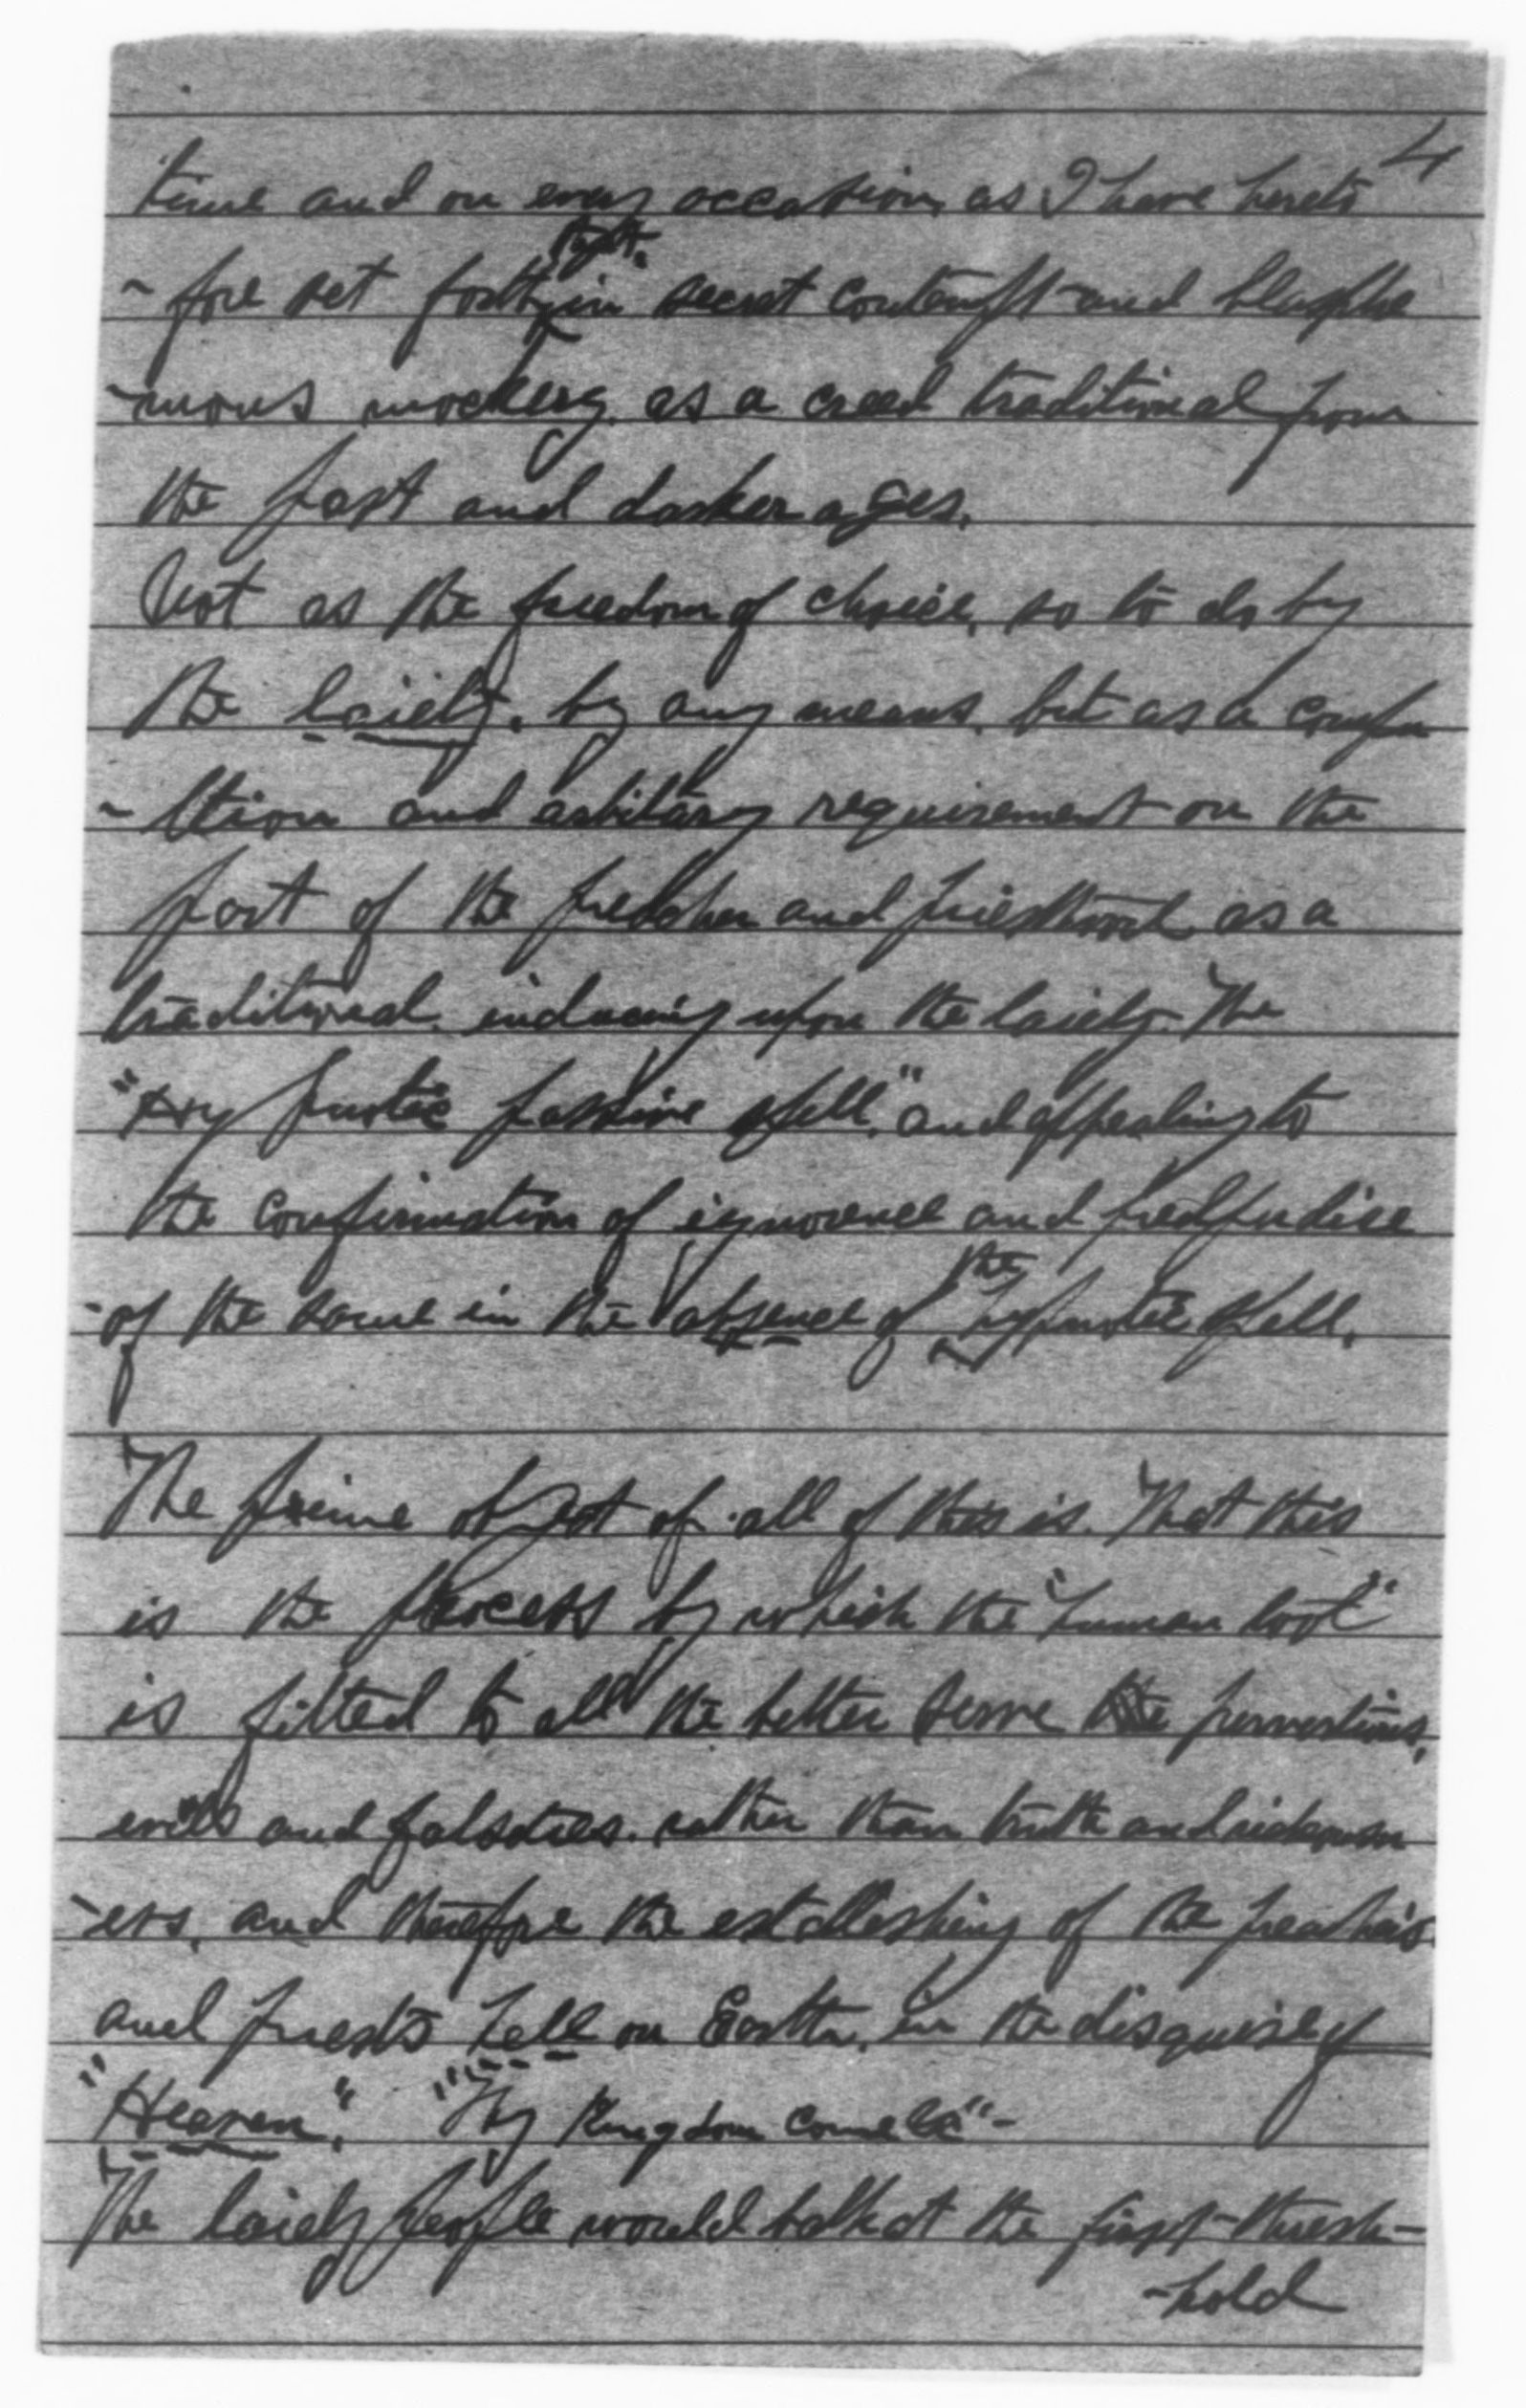 4
time and on every occasion, as I have hereto
- fore set forth, in secret contempt and blasphe
- mous mockery, as a creed traditional from
the past and darker ages.
Not as the freedom of choice, so to do by
the laiety, by any means, but as a compu
- ltion and arbitary requirement on the
part of the preacher and priesthood as a
traditional, inducing upon the laiety. The
"hypnotic passive spell," and appealing to
the confirmation of ignorence and predjudice
- of the same in the absence of the hypnotic spell.
The prime object of all of this is. That this
is the process by which the "human tool"
is fitted to all the better serve the perversions,
evils and falsoties. rather than truth and
- ess, and therefore the establishing of the preachers
and priests Hell on Earth, in the disguise of
"Heaven". "Thy Kingdom come &c" -
The laiety people would balk at the first thresh-
- hold